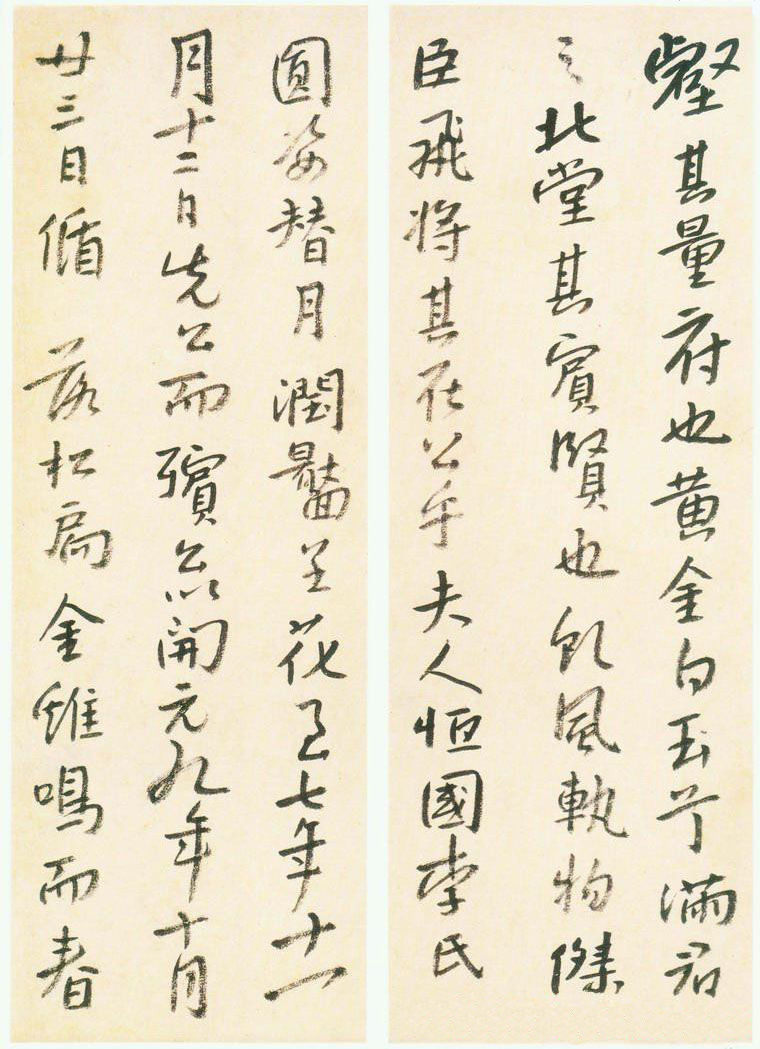 壑其量府也黄金白玉滿君
之北堂其賓賢也風執物傑
臣飛將其在公乎夫人恒國李氏
圓姿替月潤呈花七年十一
月十二日先公而殯開元九年十月
廿三日循落松扃金雞鳴而春